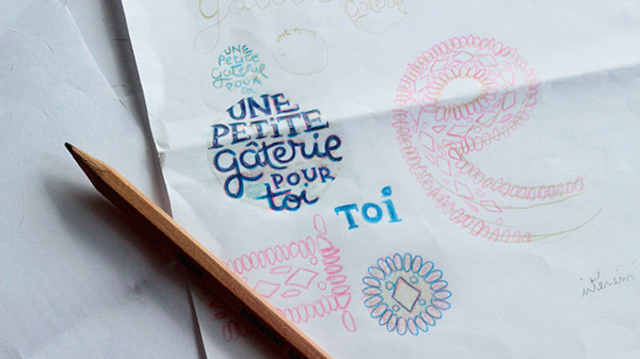 gâterie
UNE
Petite
gâterie
pour
toi
UNE
PETITE
gâterie
POUR
toi
TOi
e